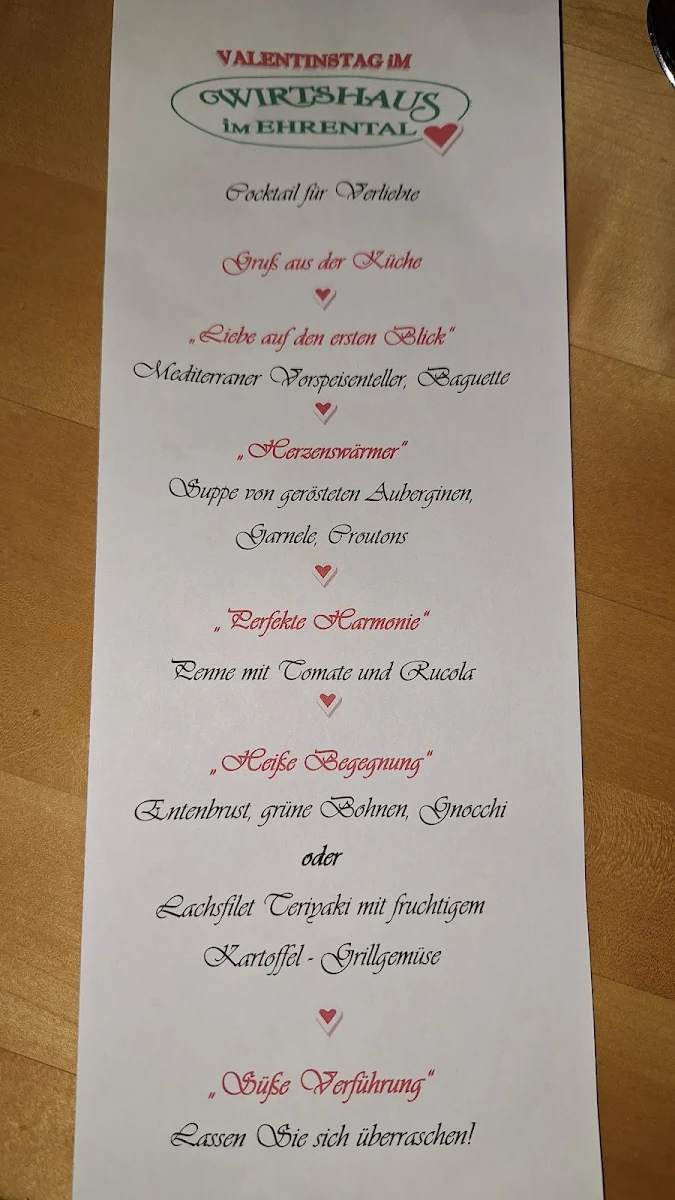 VALENTINSTAG iM
GWIRTSHAUS
iM EHRENTAL
Cocktail für Verliebte
Gruß aus der Küche
„Liebe auf den ersten Blick“
Mediterraner Vorspeisenteller, Baguette
„Herzenswärmer“
Suppe von gerösteten Auberginen,
Garnele, Croutons
„Perfekte Harmonie“
Penne mit Tomate und Rucola
„Heiße Begegnung“
Entenbrust, grüne Bohnen, Gnocchi
oder
Lachsfilet Teriyaki mit fruchtigem
Kartoffel - Grillgemüse
„Süße Verführung“
Lassen Sie sich überraschen!